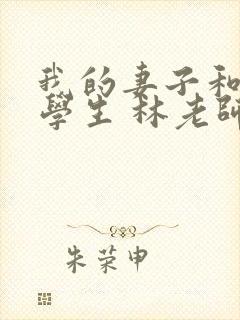 我的妻子和
學生 林老師
朱荣申